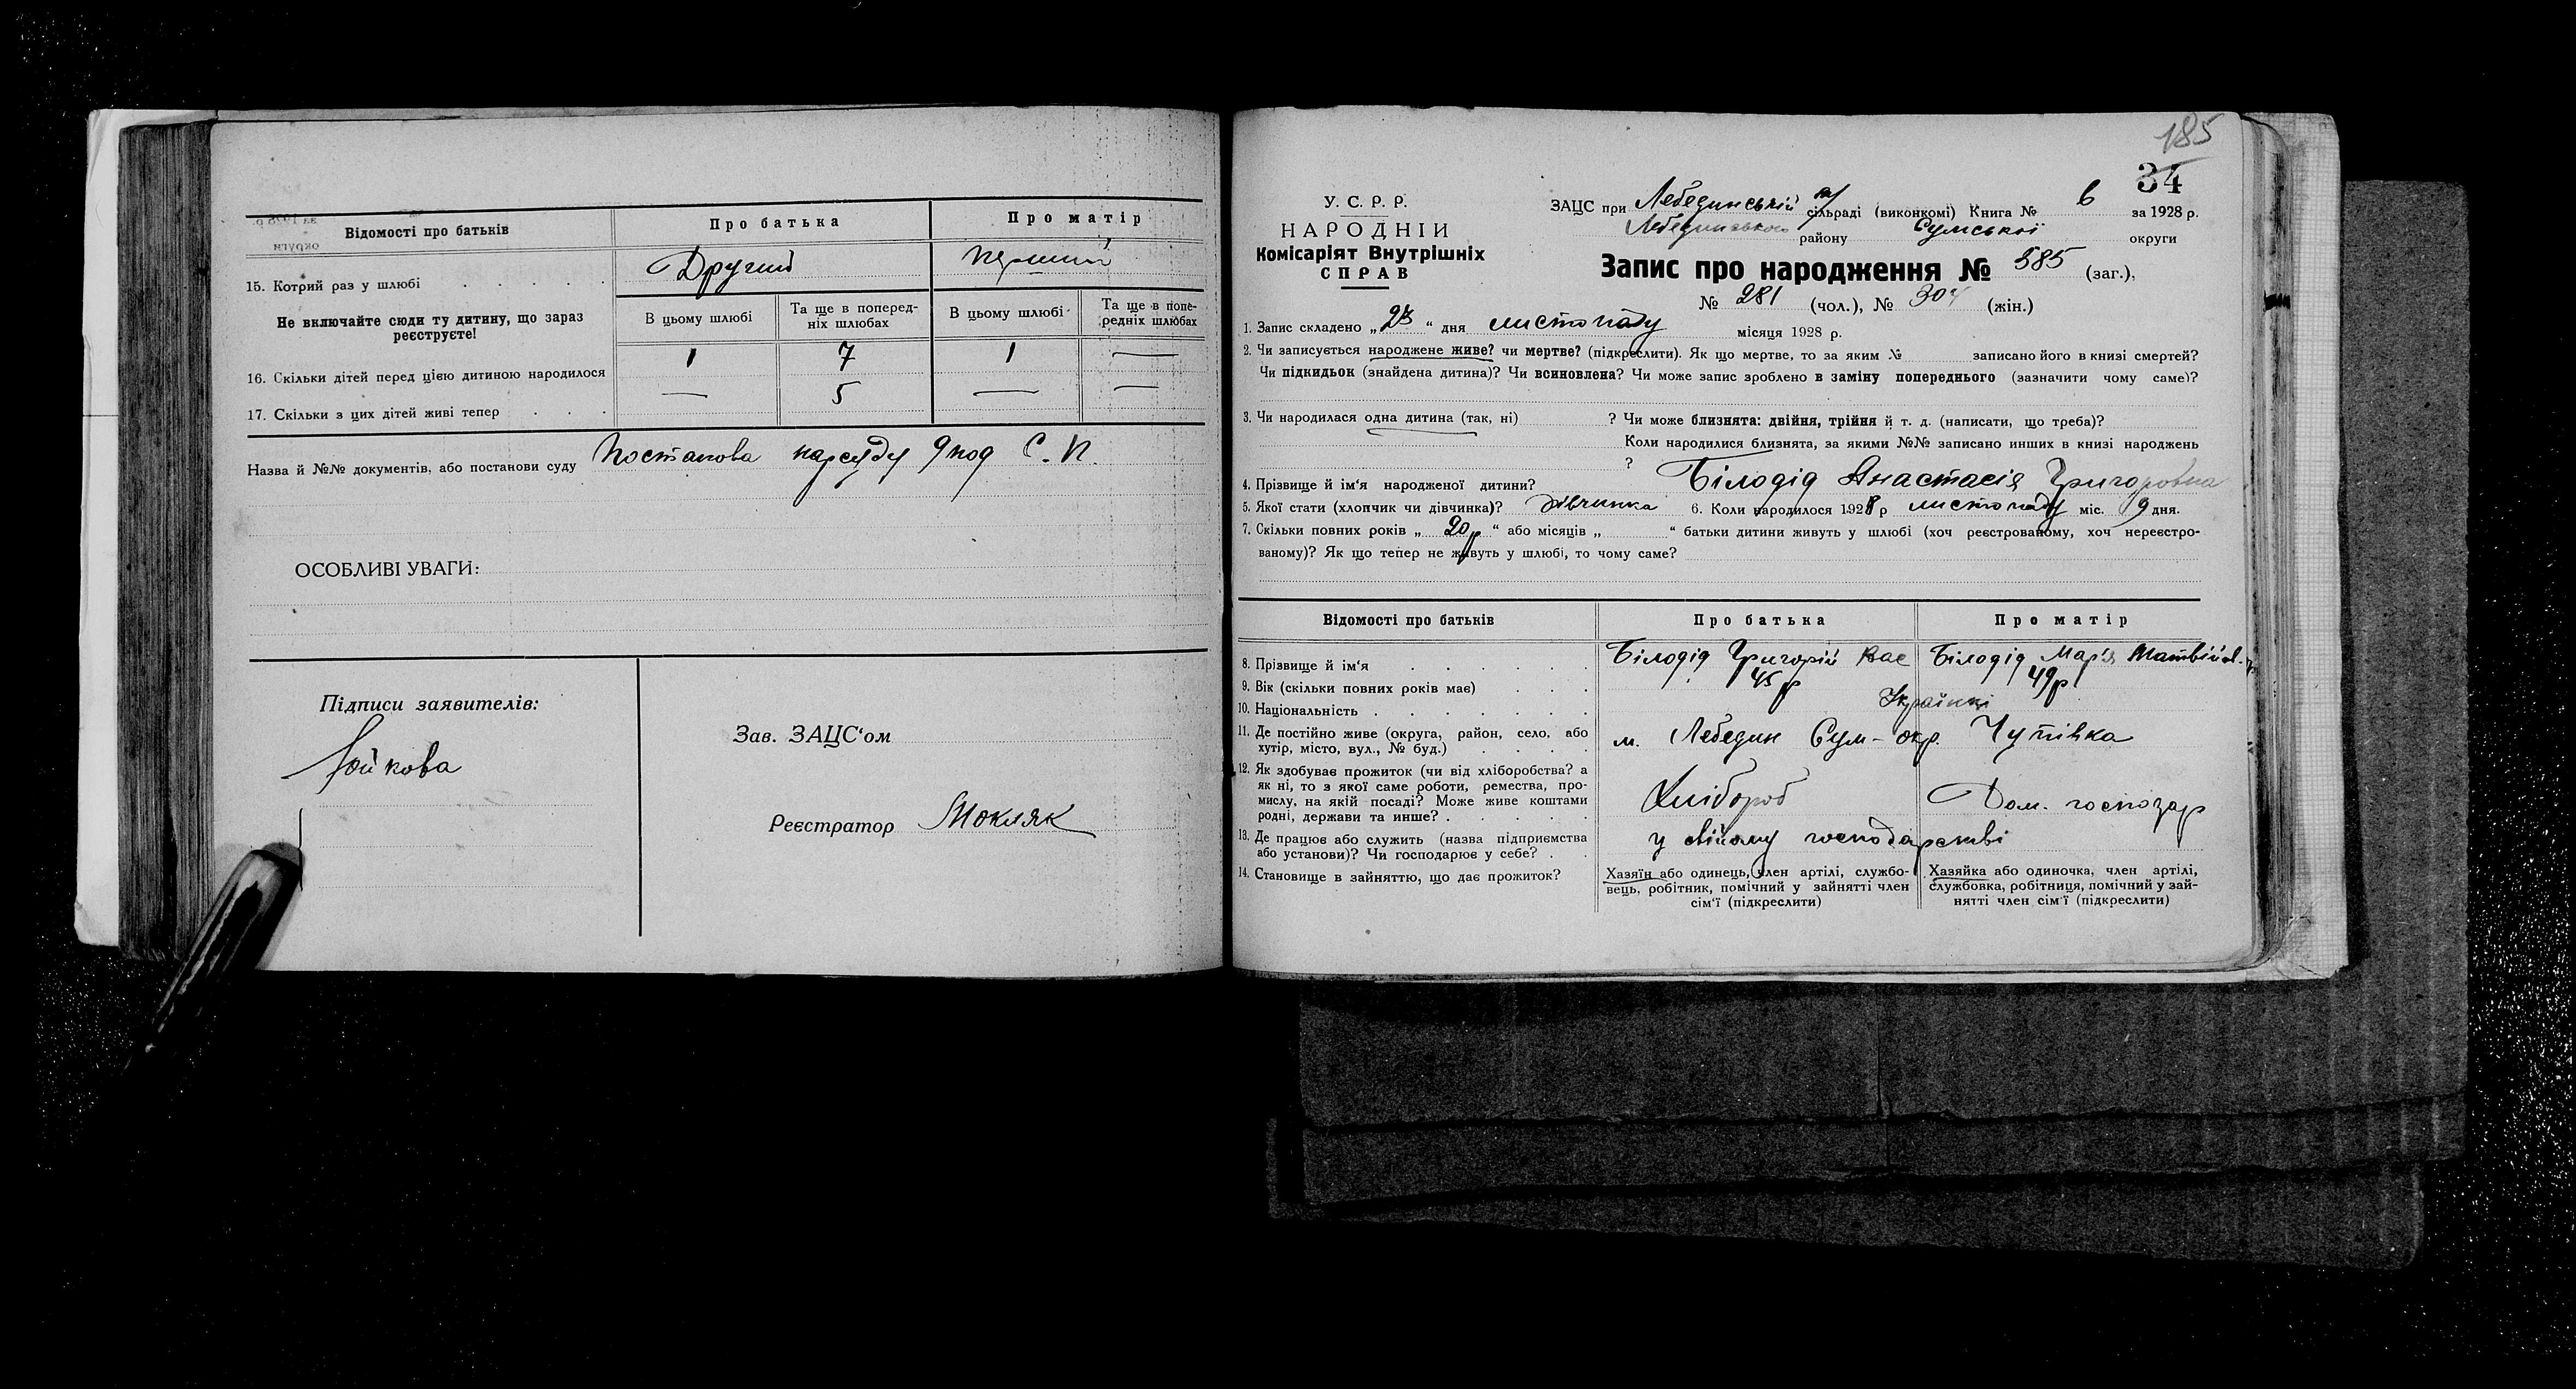 Відомості про батьків
Про батька
Про матір
15. Котрий раз у шлюбі
Другий
перший
Не включайте сюди ту дитину, що зараз реєструєте!
В цьому шлюбі
Та ще в попередніх шлюбах
В цьому шлюбі
Та ще в попередніх шлюбах
16. Скільки дітей перед цією дитиною народилося
1 7 1 —
17. Скільки з цих дітей живі тепер
— 5 — —
Назва й №№ документів, або постанови суду Постанова нарсуду 9 С. П.
ОСОБЛИВІ УВАГИ:
Підписи заявителів:
Зав. ЗАЦС‘ом
Реєстратор Мокляк
185
34
У. С. Р. Р.
НАРОДНІЙ
Комісаріят Внутрішніх
СПРАВ
ЗАЦС при Лебединській сільраді (виконкомі) Книга № 6 за 1928 р.
Лебединського району Сумської округи
Запис про народження № 585 (заг.),
№ 281 (чол.), № 304 (жін.)
1. Запис складено „ 23 “ дня листопаду місяця 1928 р.
2. Чи записується народжене живе? чи мертве? (підкреслити). Як що мертве, то за яким № записано його в книзі смертей?
Чи підкидьок (знайдена дитина)? Чи всиновлена? Чи може запис зроблено в заміну попереднього (зазначити чому саме)?
3. Чи народилася одна дитина (так, ні) ? Чи може близнята: двійня, трійня й т. д. (написати, що треба)?
Коли народилися близнята, за якими №№ записано инших в книзі народжень
?
4. Прізвище й ім‘я народженої дитини? Білодід Анастасія Григоровна
5. Якої стати (хлопчик чи дівчинка)? дівчинка 6. Коли народилося 1928 р листопаду міс. 9 дня.
7. Скільки повних років „ 20 р “ або місяців „ “ батьки дитини живуть у шлюбі (хоч реєстрованому, хоч нереєстро-
ваному)? Як що тепер не живуть у шлюбі, то чому саме?
Відомості про батьків
Про батька
Про матір
8. Прізвище й ім‘я
Білодід Григорій Вас
Білодід Марія Матвіївн.
9. Вік (скільки повних років має)
45 р
49 р
10. Національність
Українці
11. Де постійно живе (округа, район, село, або
хутір, місто, вул., № буд.)
м. Лебедин Сум- окр. Чупівка
12. Як здобуває прожиток (чи від хліборобства? а
як ні, то з якої саме роботи, ремества, про-
мислу, на якій посаді? Може живе коштами
родні, держави та инше?
Хлібороб
Дом. господар
13. Де працює або служить (назва підприємства
або установи)? Чи господарює у себе?
у свійому господарстві
14. Становище в зайняттю, що дає прожиток?
Хазяїн або одинець, член артілі, службо-
вець, робітник, помічний у зайнятті член
сім‘ї (підкреслити)
Хазяйка або одиночка, член артілі,
службовка, робітниця, помічний у зай-
нятті член сім‘ї (підкреслити)